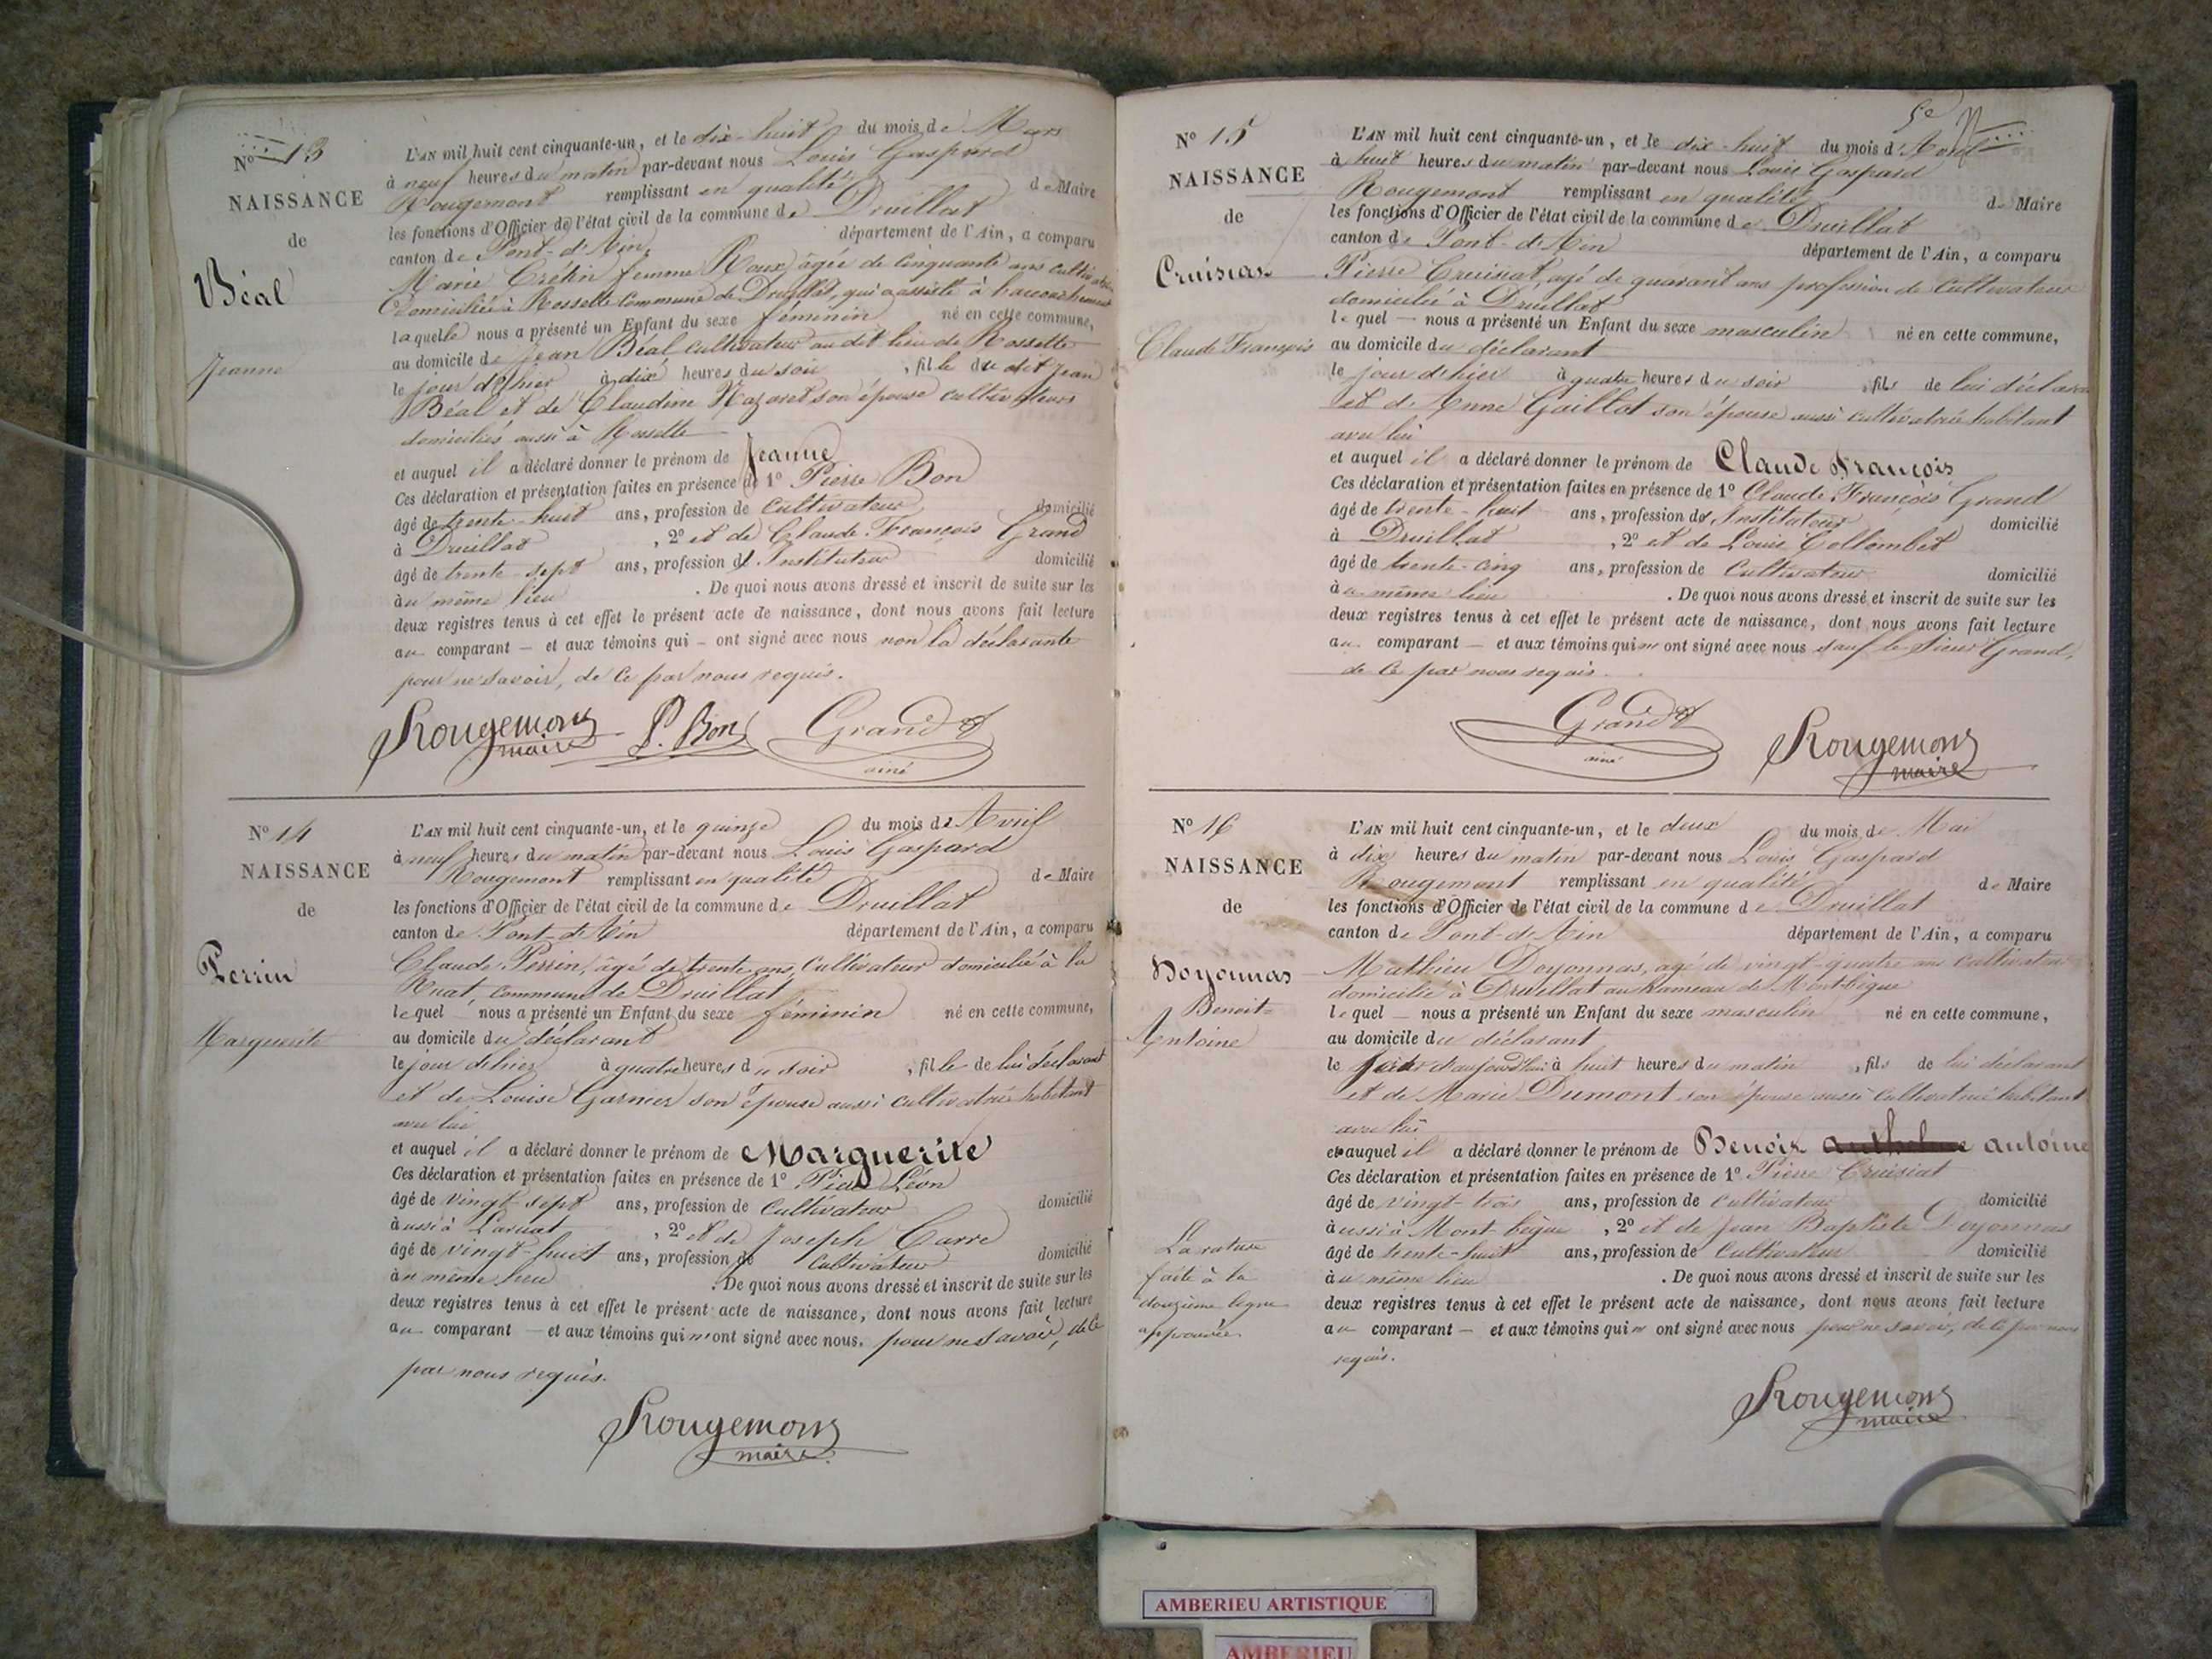 N° 13
NAISSANCE
de
Béal
Jeanne
L'AN mil huit cent cinquante-un, et le dix-huit du mois de Mars
à neuf heures du matin par-devant nous Louis Gaspard
Rougemont remplissant en qualité de Maire
les fonctions d'Officier de l'état civil de la commune de Druillat
canton de Pont-d'Ain département de l'Ain, a comparu
Marie Crétin femme Roux, âgée de cinquante ans
domiciliée à Rosselle commune de Druillat, qui a assisté à l'accouchement
laquelle nous a présenté un Enfant du sexe féminin né en cette commune,
au domicile de Jean Béal cultivateur au dit lieu de Rosselle
le jour d'hier à dix heures du soir, fille du dit Jean
Béal et de Claudine son épouse cultivateurs
domiciliés aussi à Rosselle
et auquel il a déclaré donner le prénom de Jeanne
Ces déclaration et présentation faites en présence de 1° Pierre Bon
âgé de trente-huit ans, profession de Cultivateur domicilié
à Druillat, 2° et de Claude François Grand
âgé de trente-sept ans, profession d'Instituteur domicilié
au même lieu. De quoi nous avons dressé et inscrit de suite sur les
deux registres tenus à cet effet le présent acte de naissance, dont nous avons fait lecture
au comparant — et aux témoins qui — ont signé avec nous non la déclarante
pour ne savoir, de ce par nous requis.
Rougemont maire P. Bon Grand aîné
N° 14
NAISSANCE
de
Perrin
Marguerite
L'AN mil huit cent cinquante-un, et le quinze du mois de Avril
à neuf heures du matin par-devant nous Louis Gaspard
Rougemont remplissant en qualité de Maire
les fonctions d'Officier de l'état civil de la commune de Druillat
canton de Pont-d'Ain département de l'Ain, a comparu
Claude Perrin, âgé de trente ans, Cultivateur domicilié à la
Ruat, commune de Druillat
lequel nous a présenté un Enfant du sexe féminin né en cette commune,
au domicile du déclarant
le jour d'hier à quatre heures du soir, fille de lui déclarant
et de Louise Garnier son épouse aussi cultivatrice habitant
avec lui
et auquel il a déclaré donner le prénom de Marguerite
Ces déclaration et présentation faites en présence de 1° Pierre Léon
âgé de vingt-sept ans, profession de Cultivateur domicilié
aussi à Laruat, 2° et de Joseph Carre
âgé de vingt-huit ans, profession de Cultivateur domicilié
au même lieu. De quoi nous avons dressé et inscrit de suite sur les
deux registres tenus à cet effet le présent acte de naissance, dont nous avons fait lecture
au comparant — et aux témoins qui n'ont signé avec nous, pour ne savoir, de ce
par nous requis.
Rougemont
maire
5e
N° 15
NAISSANCE
de
Cruisiat
Claude François
L'AN mil huit cent cinquante-un, et le dix-huit du mois d'Avril
à huit heures du matin par-devant nous Louis Gaspard
Rougemont remplissant en qualité de Maire
les fonctions d'Officier de l'état civil de la commune de Druillat
canton de Pont-d'Ain département de l'Ain, a comparu
Pierre Cruisiat, agé de quarant ans profession de Cultivateur
domicilié à Druillat
lequel — nous a présenté un Enfant du sexe masculin né en cette commune,
au domicile du déclarant
le jour d'hier à quatre heures du soir, fils de lui déclarant
et d'Anne Gaillot son épouse aussi cultivatrice habitant
avec lui
et auquel il a déclaré donner le prénom de Claude François
Ces déclaration et présentation faites en présence de 1° Claude François Grand
âgé de trente-huit ans, profession d'Instituteur domicilié
à Druillat, 2° et de Louis Collombet
âgé de trente-cinq ans, profession de Cultivateur domicilié
au même lieu. De quoi nous avons dressé et inscrit de suite sur les
deux registres tenus à cet effet le présent acte de naissance, dont nous avons fait lecture
au comparant — et aux témoins qui n'ont signé avec nous sauf le Sieur Grand,
de ce par nous requis.
Grand aîné Rougemont maire
N° 16
NAISSANCE
de
Doyonnas
Benoit-
Antoine
L'AN mil huit cent cinquante-un, et le deux du mois de Mai
à dix heures du matin par-devant nous Louis Gaspard
Rougemont remplissant en qualité de Maire
les fonctions d'Officier de l'état civil de la commune de Druillat
canton de Pont-d'Ain département de l'Ain, a comparu
Mathieu Doyonnas, agé de vingt-quatre ans cultivateur
domicilié à Druillat au hameau de Mont-bègue
lequel — nous a présenté un Enfant du sexe masculin né en cette commune,
au domicile du déclarant
le jour d'aujourd'hui à huit heures du matin, fils de lui déclarant
et de Marie Dumont son épouse aussi Cultivatrice habitant
avec lui
et auquel il a déclaré donner le prénom de Benoit anthelme antoine
Ces déclaration et présentation faites en présence de 1° Pierre Cruisiat
âgé de vingt-trois ans, profession de Cultivateur domicilié
aussi à Mont-bègue, 2° et de Jean Baptiste Doyonnas
âgé de trente-huit ans, profession de Cultivateur domicilié
au même lieu. De quoi nous avons dressé et inscrit de suite sur les
deux registres tenus à cet effet le présent acte de naissance, dont nous avons fait lecture
au comparant — et aux témoins qui n'ont signé avec nous pour ne savoir, de ce par nous
requis.
La rature
faite à la
douzième ligne
approuvée.
Rougemont
maire
AMBERIEU ARTISTIQUE
AMBERIEU